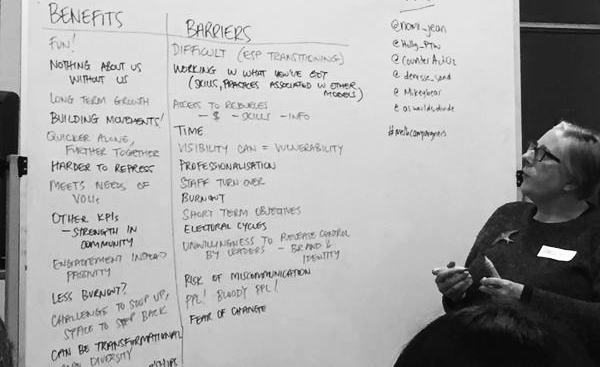 BENEFITS
FUN!
NOTHING ABOUT US
WITHOUT US
LONG TERM GROWTH
BUILDING MOVEMENTS!
QUICKER ALONE,
FURTHER TOGETHER
HARDER TO REPRESS
MEETS NEEDS OF
VOLS
OTHER KPIs
- STRENGTH IN
COMMUNITY
ENGAGEMENT INSTEAD
PASSIVITY
LESS BURNOUT?
CHALLENGES TO STEP UP,
SPACE TO STEP BACK
CAN BE TRANSFORMATIONAL
DIVERSITY
BARRIERS
DIFFICULT (ESP TRANSITIONING)
WORKING W WHAT YOU'VE GOT
(SKILLS, PRACTICES ASSOCIATED W OTHER
MODELS)
ACCESS TO RESOURCES
- $ - SKILLS - INFO
TIME
VISIBILITY CAN = VULNERABILITY
PROFESSIONALISATION
STAFF TURN OVER
BURNOUT
SHORT TERM OBJECTIVES
ELECTORAL CYCLES
UNWILLINGNESS TO RELEASE CONTROL
BY LEADERS - BRAND &
IDENTITY
RISK OF MISCOMMUNICATION
PPL! BLOODY PPL!
FEAR OF CHANGE
@Holly_PTW
@mikeybear
#melbcampaigners